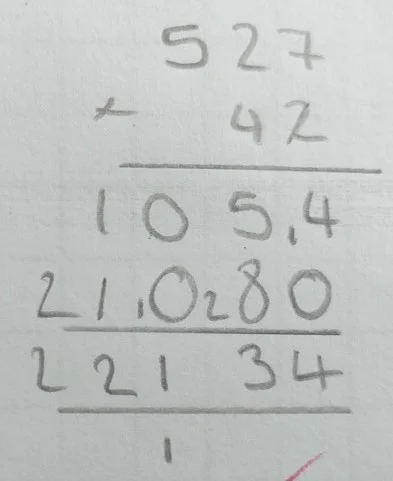 527
× 42
105,4
21,0280
22134
1